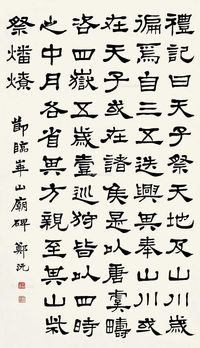 禮記曰天子祭天地及山川歲
徧焉自三五迭興其奉山川或
在天子或在諸侯是以唐虞疇
咨四嶽五歲壹巡狩皆以四時
之中月各省其方親至其山柴
祭燔燎
節臨華山廟碑 鄭沅